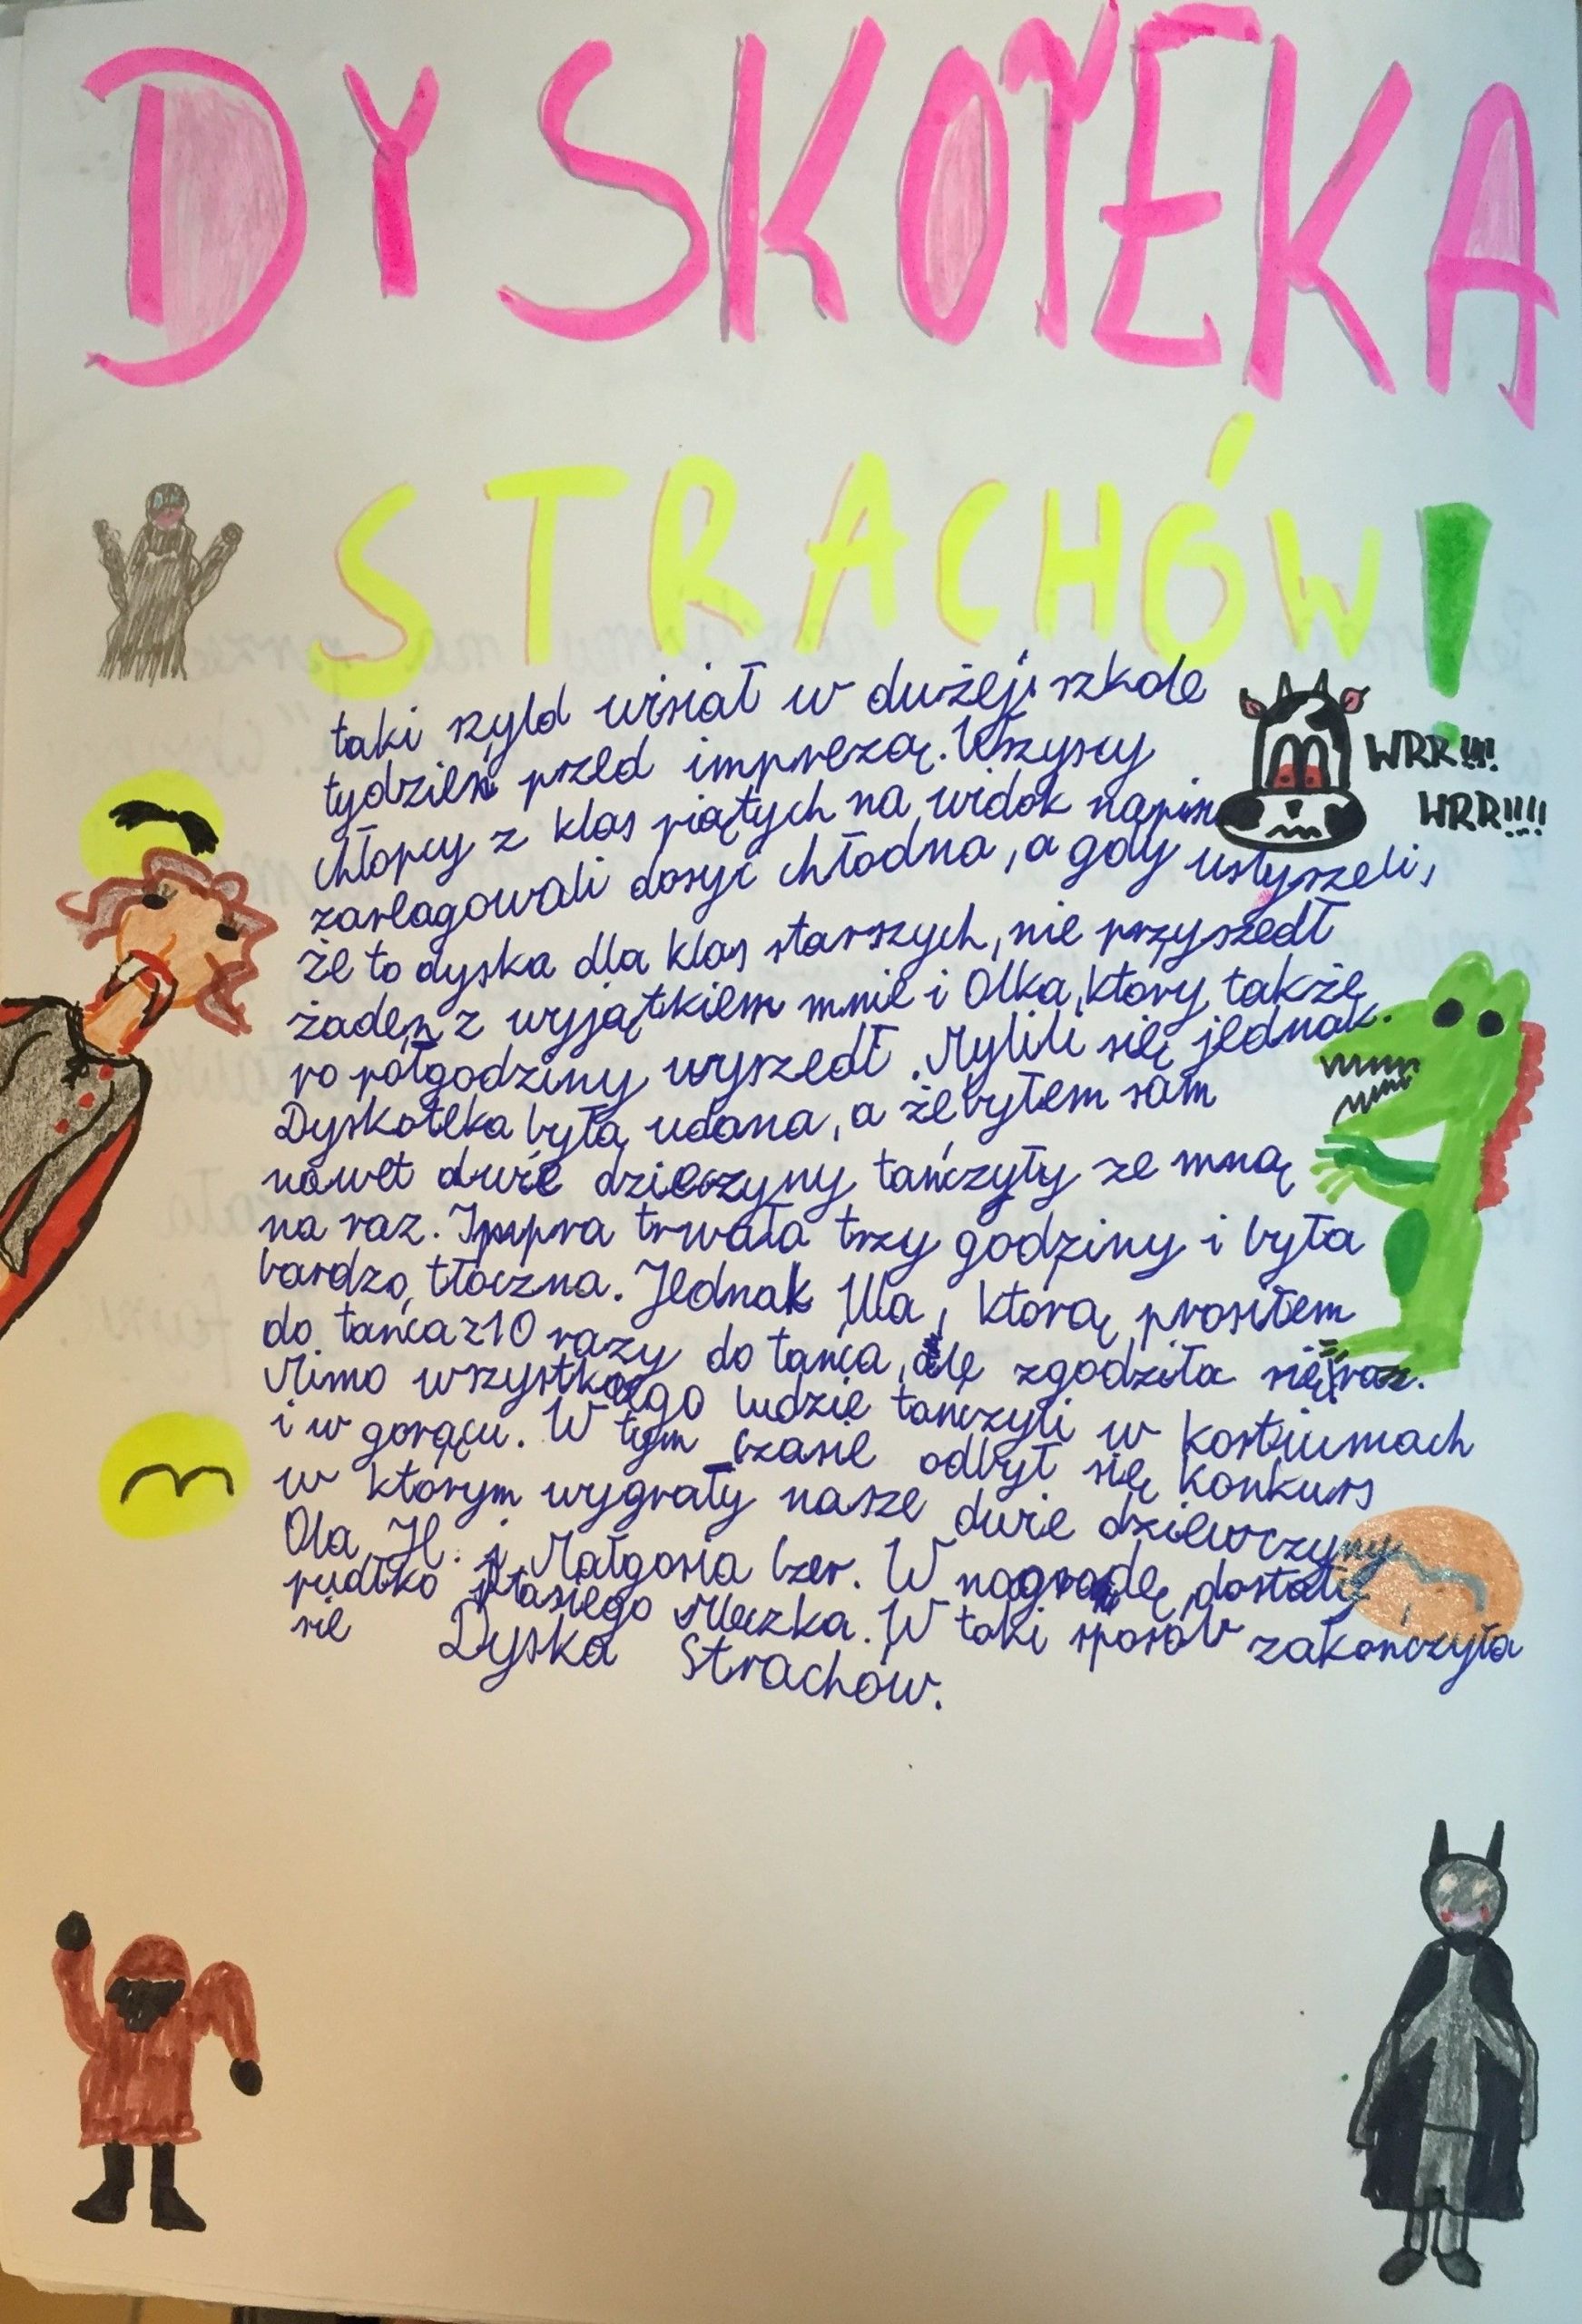 DYSKOTEKA
STRACHÓW!
taki szyld wisiał w dużej szkole
tydzień przed imprezą. Wszyscy
WRR!!!
chłopcy z klas piątych na widok napisu
WRR!!!!
zareagowali dosyć chłodno, a gdy usłyszeli,
że to dyska dla klas starszych, nie przyszedł
żaden z wyjątkiem mnie i Olka, który także
po półgodziny wyszedł. Mylili się jednak.
Dyskoteka była udana, a że byłem sam
nawet dwie dziewczyny tańczyły ze mną
na raz. Impra trwała trzy godziny i była
bardzo tłoczna. Jednak Ula, którą prosiłem
do tańca z 10 razy do tańca, ale zgodziła się raz.
Mimo wszystkiego ludzie tańczyli w kostiumach
i w gorącu. W tym czasie odbył się konkurs
w którym wygrały nasze dwie dziewczyny
Ola H. i Małgosia Czer. W nagrodę dostały
pudłko ptasiego Mleczka. W taki sposób zakończyła
sie Dyska Strachów.